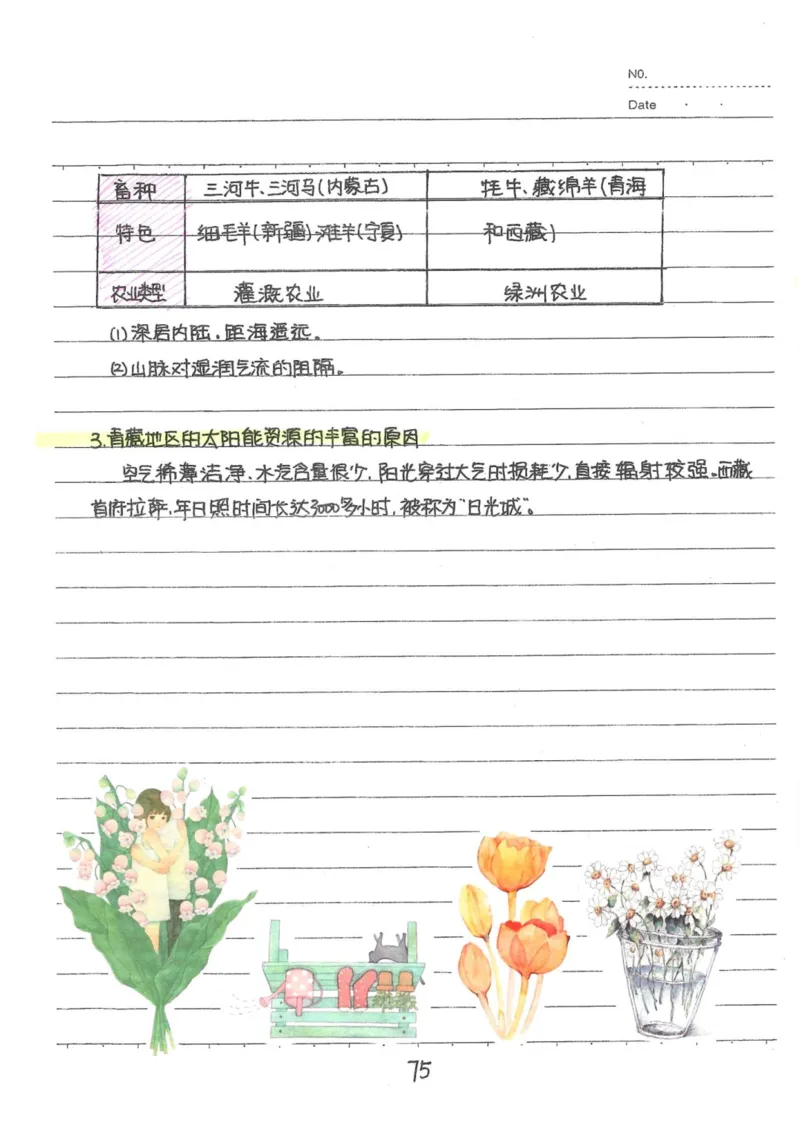 NO.
Date
畜种 三河牛、三河马(内蒙古) 牦牛、藏绵羊(青海
特色 细毛羊(新疆)滩羊(宁夏) 和西藏)
农业类型 灌溉农业 绿洲农业
(1)深居内陆,距海遥远。
(2)山脉对湿润气流的阻隔。
3.青藏地区的太阳能资源的丰富的原因
空气稀薄洁净、水汽含量很少,阳光穿过大气时损耗少,直接辐射较强。西藏
首府拉萨,年日照时间长达3000多小时,被称为“日光城”。
75